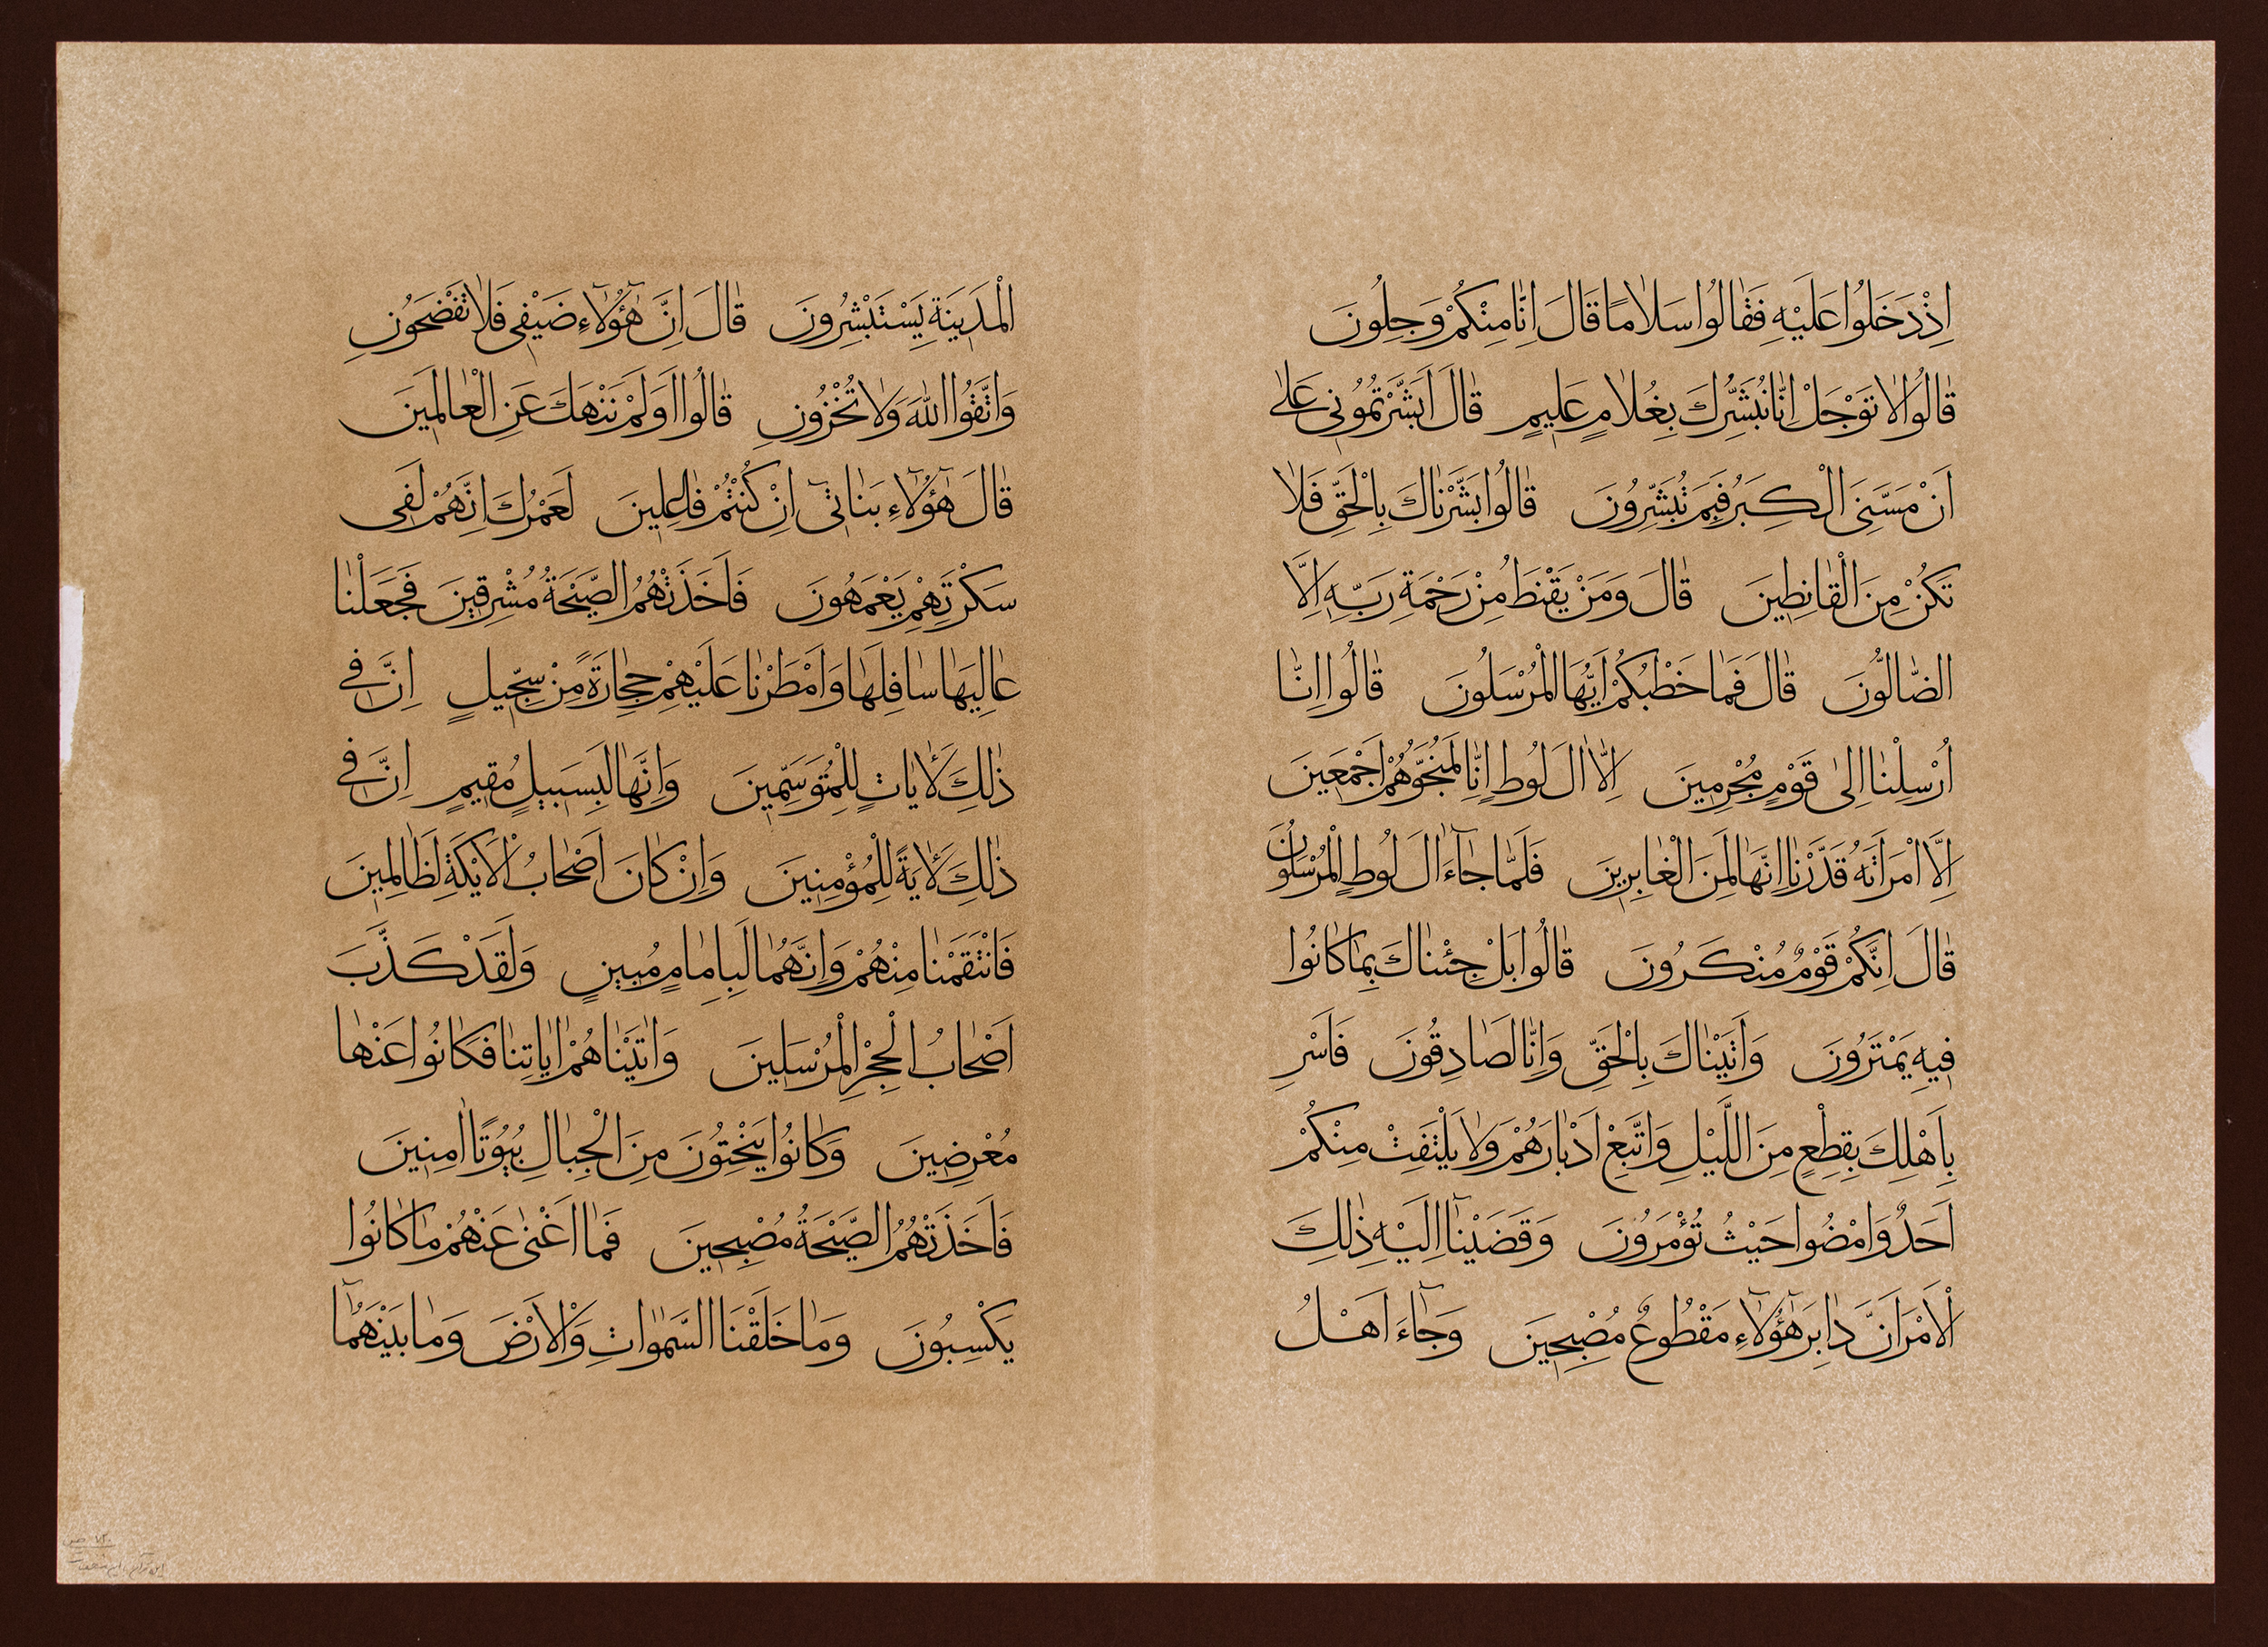 اِذْ دَخَلُوا عَلَيْهِ فَقٰالُوا سَلاٰمًا قٰالَ اِنّٰا مِنْكُمْ وَجِلُونَ
قٰالُوا لاٰ تَوْجَلْ اِنّٰا نُبَشِّرُكَ بِغُلاٰمٍ عَلِيمٍ قٰالَ اَبَشَّرْتُمُونِي عَلىٰ
اَنْ مَسَّنِيَ الْكِبَرُ فَبِمَ تُبَشِّرُونَ قٰالُوا بَشَّرْنٰاكَ بِالْحَقِّ فَلاٰ
تَكُنْ مِنَ الْقٰانِطِينَ قٰالَ وَمَنْ يَقْنَطُ مِنْ رَحْمَةِ رَبِّهِ اِلاَّ
الضّٰالُّونَ قٰالَ فَمٰا خَطْبُكُمْ اَيُّهَا الْمُرْسَلُونَ قٰالُوا اِنّٰا
اُرْسِلْنٰا اِلىٰ قَوْمٍ مُجْرِمِينَ اِلاّٰ اٰلَ لُوطٍ اِنّٰا لَمُنَجُّوهُمْ اَجْمَعِينَ
اِلاَّ امْرَاَتَهُ قَدَّرْنٰا اِنَّهٰا لَمِنَ الْغٰابِرِينَ فَلَمّٰا جٰٓاءَ اٰلَ لُوطٍ الْمُرْسَلُونَ
قٰالَ اِنَّكُمْ قَوْمٌ مُنْكَرُونَ قٰالُوا بَلْ جِئْنٰاكَ بِمٰا كٰانُوا
فِيهِ يَمْتَرُونَ وَاَتَيْنٰاكَ بِالْحَقِّ وَاِنّٰا لَصٰادِقُونَ فَاَسْرِ
بِاَهْلِكَ بِقِطْعٍ مِنَ اللَّيْلِ وَاتَّبِعْ اَدْبٰارَهُمْ وَلاٰ يَلْتَفِتْ مِنْكُمْ
اَحَدٌ وَامْضُوا حَيْثُ تُؤْمَرُونَ وَقَضَيْنٰٓا اِلَيْهِ ذٰلِكَ
الْاَمْرَ اَنَّ دٰابِرَ هٰٓؤُلآٰءِ مَقْطُوعٌ مُصْبِحِينَ وَجٰٓاءَ اَهْلُ
الْمَدِينَةِ يَسْتَبْشِرُونَ قٰالَ اِنَّ هٰٓؤُلآٰءِ ضَيْفِي فَلاٰ تَفْضَحُونِ
وَاتَّقُوا اللّٰهَ وَلاٰ تُخْزُونِ قٰالُوا اَوَلَمْ نَنْهَكَ عَنِ الْعٰالَمِينَ
قٰالَ هٰٓؤُلآٰءِ بَنٰاتِيٓ اِنْ كُنْتُمْ فٰاعِلِينَ لَعَمْرُكَ اِنَّهُمْ لَفِي
سَكْرَتِهِمْ يَعْمَهُونَ فَاَخَذَتْهُمُ الصَّيْحَةُ مُشْرِقِينَ فَجَعَلْنٰا
عٰالِيَهٰا سٰافِلَهٰا وَاَمْطَرْنٰا عَلَيْهِمْ حِجٰارَةً مِنْ سِجِّيلٍ اِنَّ فِي
ذٰلِكَ لَاٰيٰاتٍ لِلْمُتَوَسِّمِينَ وَاِنَّهٰا لَبِسَبِيلٍ مُقِيمٍ اِنَّ فِي
ذٰلِكَ لَاٰيَةً لِلْمُؤْمِنِينَ وَاِنْ كٰانَ اَصْحٰابُ الْاَيْكَةِ لَظٰالِمِينَ
فَانْتَقَمْنٰا مِنْهُمْ وَاِنَّهُمٰا لَبِاِمٰامٍ مُبِينٍ وَلَقَدْ كَذَّبَ
اَصْحٰابُ الْحِجْرِ الْمُرْسَلِينَ وَاٰتَيْنٰاهُمْ اٰيٰاتِنٰا فَكٰانُوا عَنْهٰا
مُعْرِضِينَ وَكٰانُوا يَنْحِتُونَ مِنَ الْجِبٰالِ بُيُوتًا اٰمِنِينَ
فَاَخَذَتْهُمُ الصَّيْحَةُ مُصْبِحِينَ فَمٰا اَغْنىٰ عَنْهُمْ مٰا كٰانُوا
يَكْسِبُونَ وَمٰا خَلَقْنَا السَّمٰوٰاتِ وَالْاَرْضَ وَمٰا بَيْنَهُمٰٓا